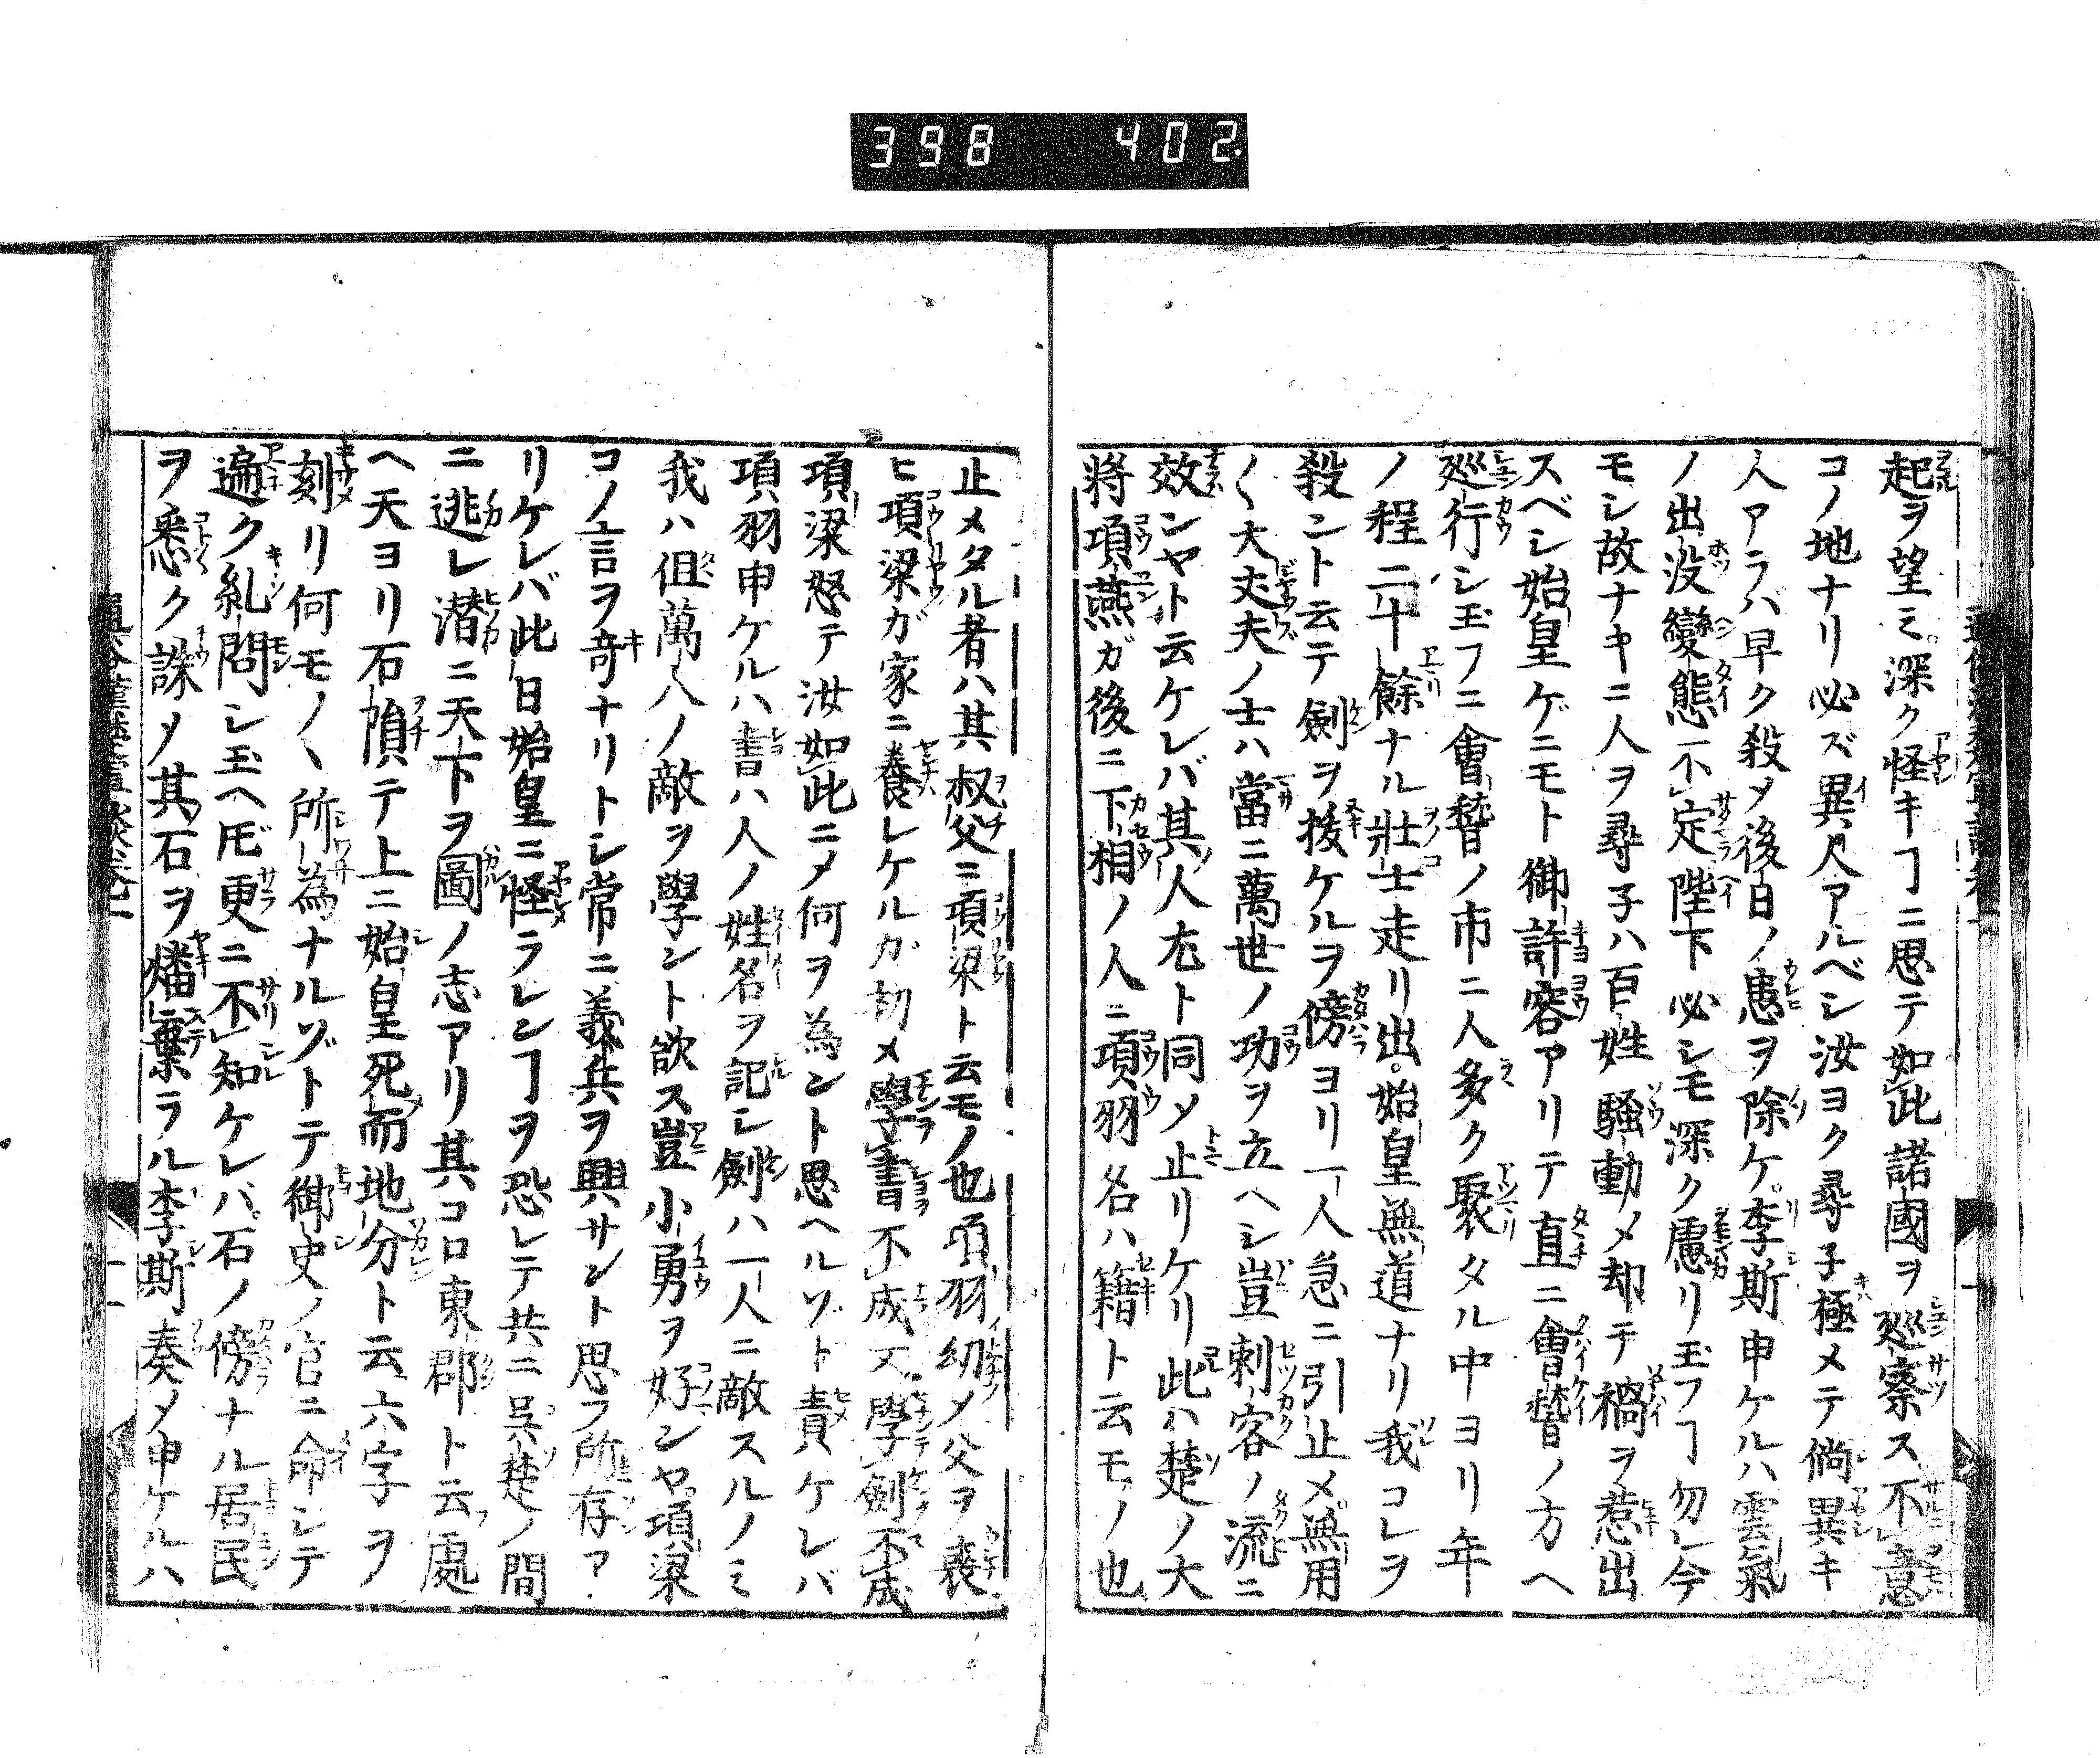 398 402
起ヲ望ミ深ク怪キヿニ思テ如此諸國ヲ廵察ス不意
コノ地ナリ必ズ異人アルベシ汝ヨク尋子極メテ倘異キ
人アラハ早ク殺メ後日ノ患ヲ除ケ李斯申ケルハ雲氣
ノ出没變態不定陛下必シモ深ク慮リ玉フヿ勿レ今
モシ故ナキニ人ヲ尋子ハ百姓騒動メ却テ禍ヲ惹出
スベシ始皇ゲニモト御許容アリテ直ニ會稽ノ方ヘ
廵行シ玉フニ會稽ノ市ニ人多ク聚タル中ヨリ年
ノ程二十餘ナル壯士走リ出始皇無道ナリ我コレヲ
殺ント云テ劍ヲ拔ケルヲ傍ヨリ一人急ニ引止メ無用
〱大丈夫ノ士ハ當ニ萬世ノ功ヲ立ヘシ豈刺客ノ流ニ
效ンヤト云ケレバ其人尤ト同メ止リケリ此ハ楚ノ大
將項燕ガ後ニ下相ノ人ニ項羽名ハ籍ト云モノ也
止メタル者ハ其叔父ニ項梁ト云モノ也項羽幼メ父ヲ喪
ヒ項梁ガ家ニ養レケルガ初メ學書不成又學劍不成
項梁怒テ汝如此ニメ何ヲ為ント思ヘルソト責ケレバ
項羽申ケルハ書ハ人ノ姓名ヲ記シ劍ハ一人ニ敵スルノミ
我ハ伹萬人ノ敵ヲ學ント欲ス豈小勇ヲ好シヤ項梁
コノ言ヲ竒ナリトシ常ニ義兵ヲ興サント思フ所存ア
リケレバ此日始皇ニ怪ラレンヿヲ恐レテ共ニ呉楚ノ間
ニ逃レ潜ニ天下ヲ圖ノ志アリ其コロ東郡ト云處
ヘ天ヨリ石隕テ上ニ始皇死而地分ト云六字ヲ
刻リ何モノヽ所為ナルゾトテ御史ノ官ニ命シテ
遍ク糺問シ玉ヘ𪜈更ニ不知ケレバ石ノ傍ナル居民
ヲ悉ク誅メ其石ヲ燔棄ラル李斯奏メ申ケルハ